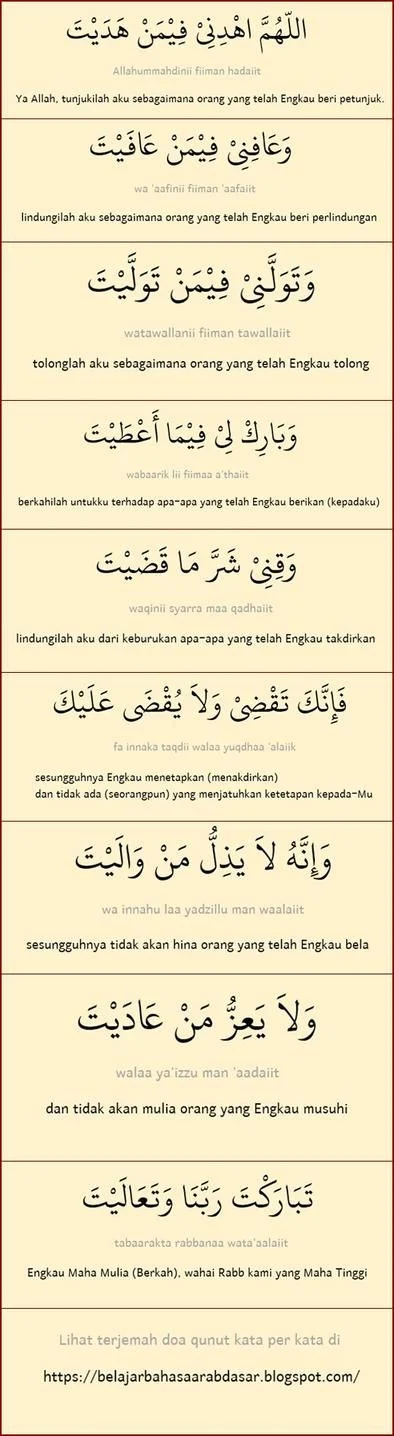 اللّهُمَّ اهْدِنِيْ فِيْمَنْ هَدَيْتَ
Allahummahdinii fiiman hadaiit
Ya Allah, tunjukilah aku sebagaimana orang yang telah Engkau beri petunjuk.
وَعَافِنِيْ فِيْمَنْ عَافَيْتَ
wa 'aafinii fiiman 'aafaiit
lindungilah aku sebagaimana orang yang telah Engkau beri perlindungan
وَتَوَلَّنِيْ فِيْمَنْ تَوَلَّيْتَ
watawallanii fiiman tawallaiit
tolonglah aku sebagaimana orang yang telah Engkau tolong
وَبَارِكْ لِيْ فِيْمَا أَعْطَيْتَ
wabaarik lii fiimaa a'thaiit
berkahilah untukku terhadap apa-apa yang telah Engkau berikan (kepadaku)
وَقِنِيْ شَرَّ مَا قَضَيْتَ
waqinii syarra maa qadhaiit
lindungilah aku dari keburukan apa-apa yang telah Engkau takdirkan
فَإِنَّكَ تَقْضِيْ وَلاَ يُقْضَى عَلَيْكَ
fa innaka taqdii walaa yuqdhaa 'alaiik
sesungguhnya Engkau menetapkan (menakdirkan)
dan tidak ada (seorangpun) yang menjatuhkan ketetapan kepada-Mu
وَإِنَّهُ لاَ يَذِلُّ مَنْ وَالَيْتَ
wa innahu laa yadzillu man waalaiit
sesungguhnya tidak akan hina orang yang telah Engkau bela
وَلاَ يَعِزُّ مَنْ عَادَيْتَ
walaa ya'izzu man 'aadaiit
dan tidak akan mulia orang yang Engkau musuhi
تَبَارَكْتَ رَبَّنَا وَتَعَالَيْتَ
tabaarakta rabbanaa wata'aalaiit
Engkau Maha Mulia (Berkah), wahai Rabb kami yang Maha Tinggi
Lihat terjemah doa qunut kata per kata di
https://belajarbahasaarabdasar.blogspot.com/